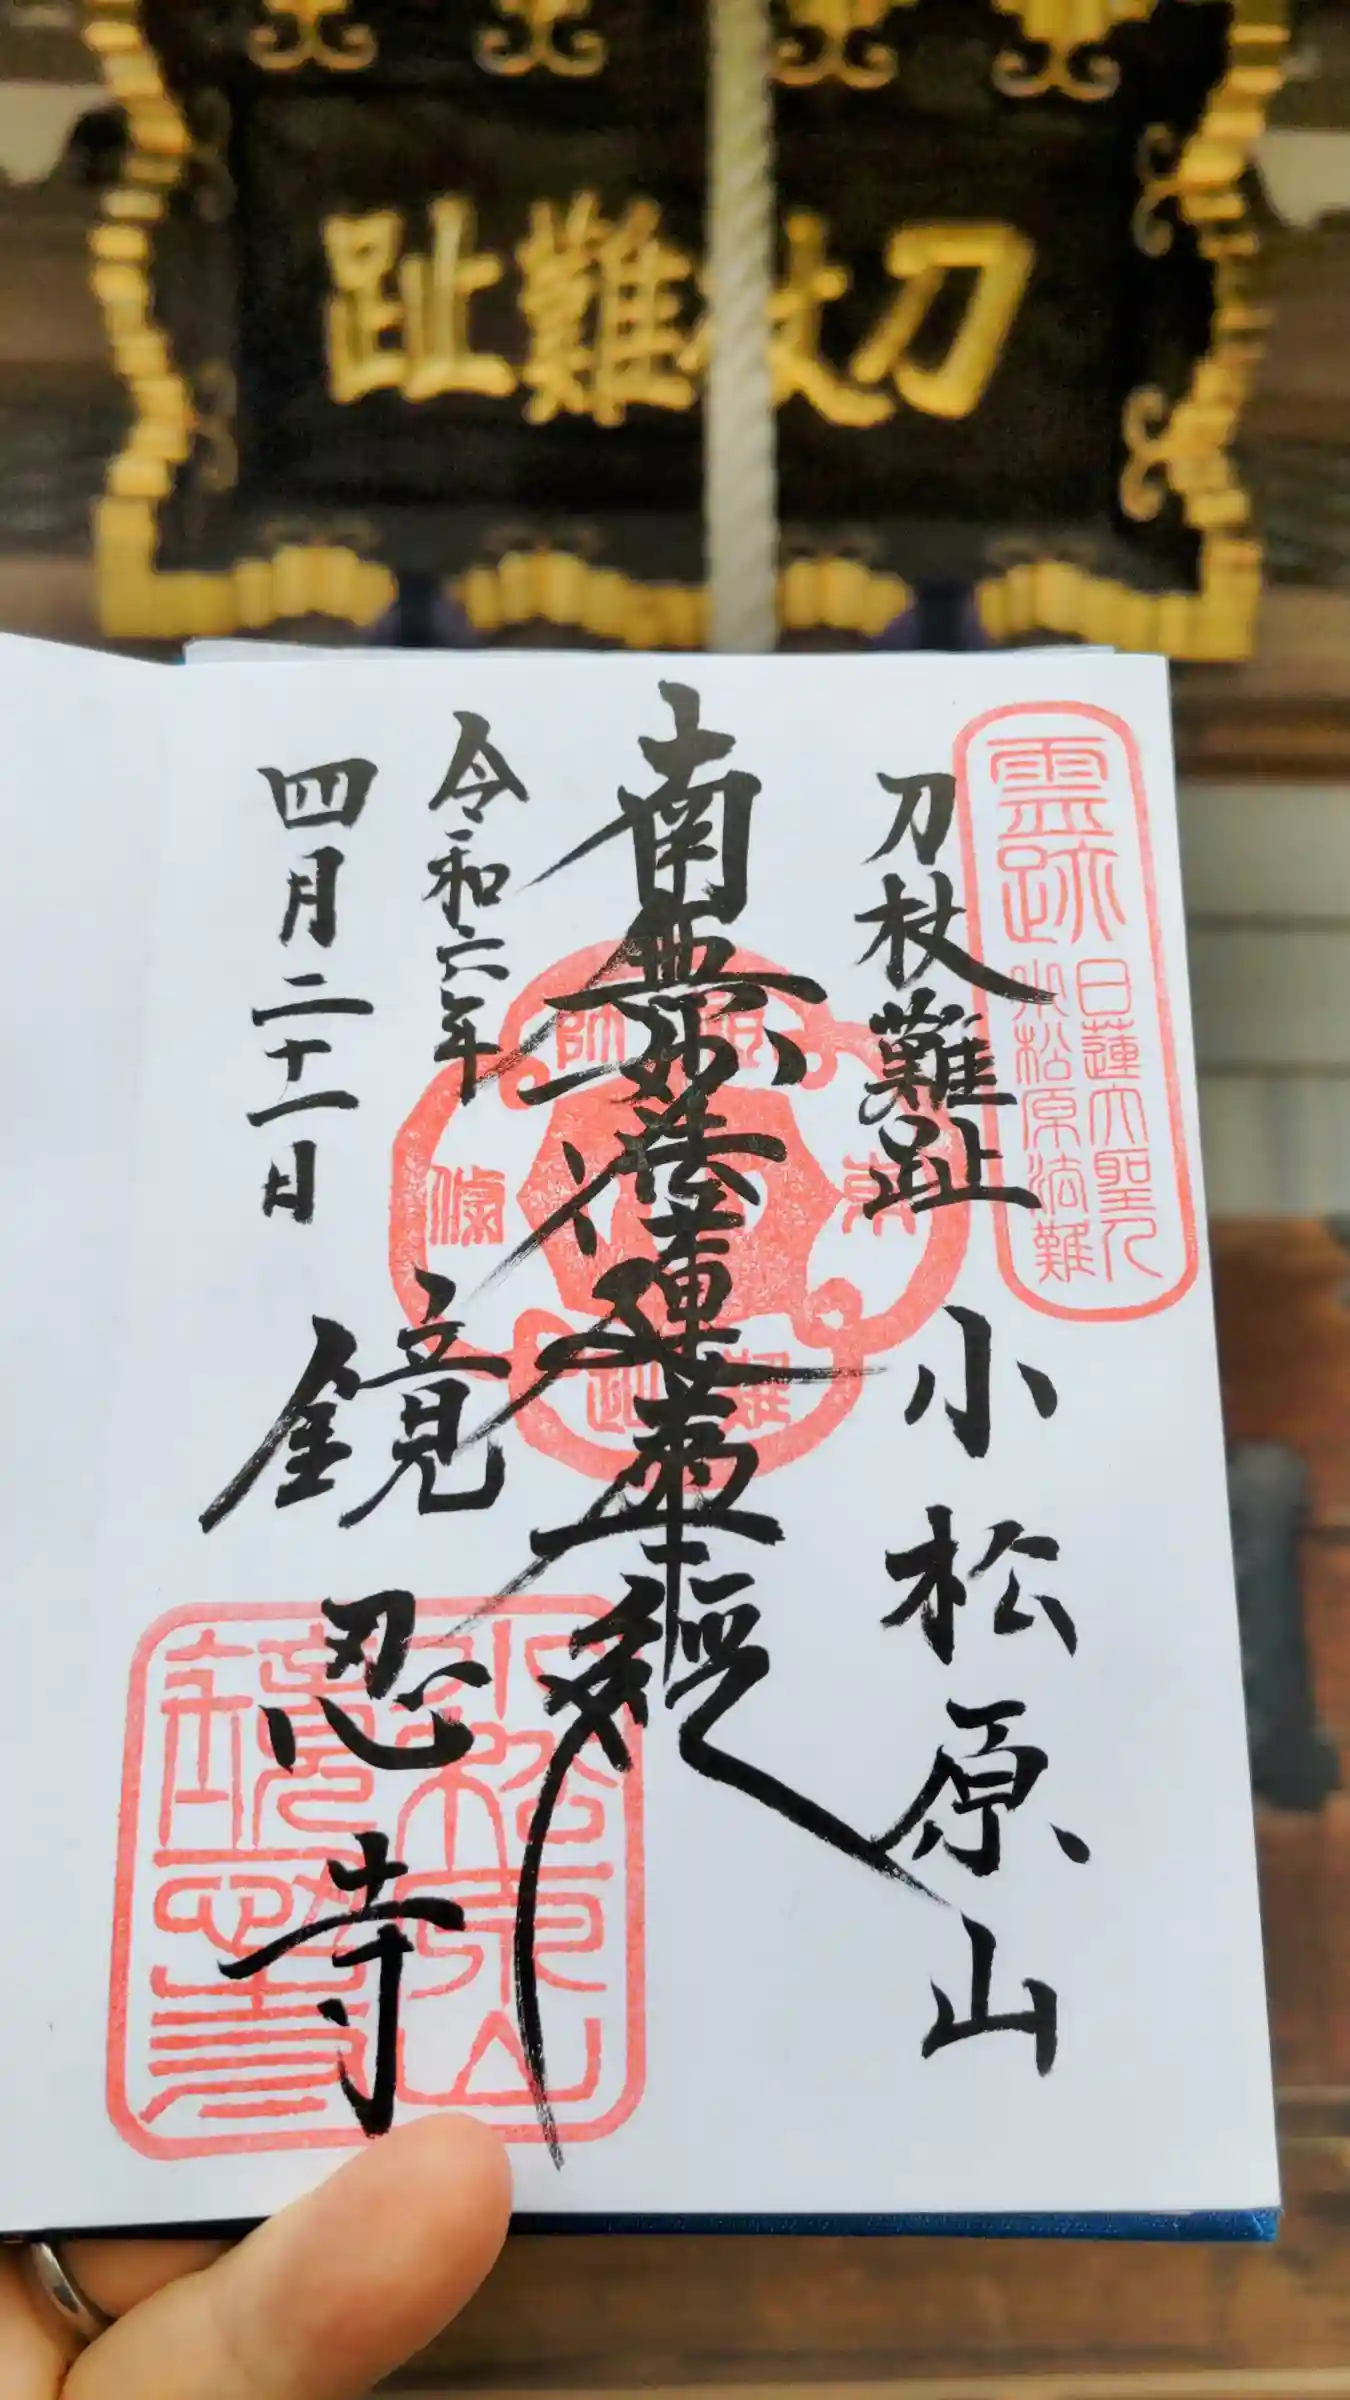 刀杖難趾
霊跡
日蓮大聖人
小松原法難
刀杖難趾
小松原山
南無妙法蓮華經
令和六年
四月二十一日
鏡忍寺